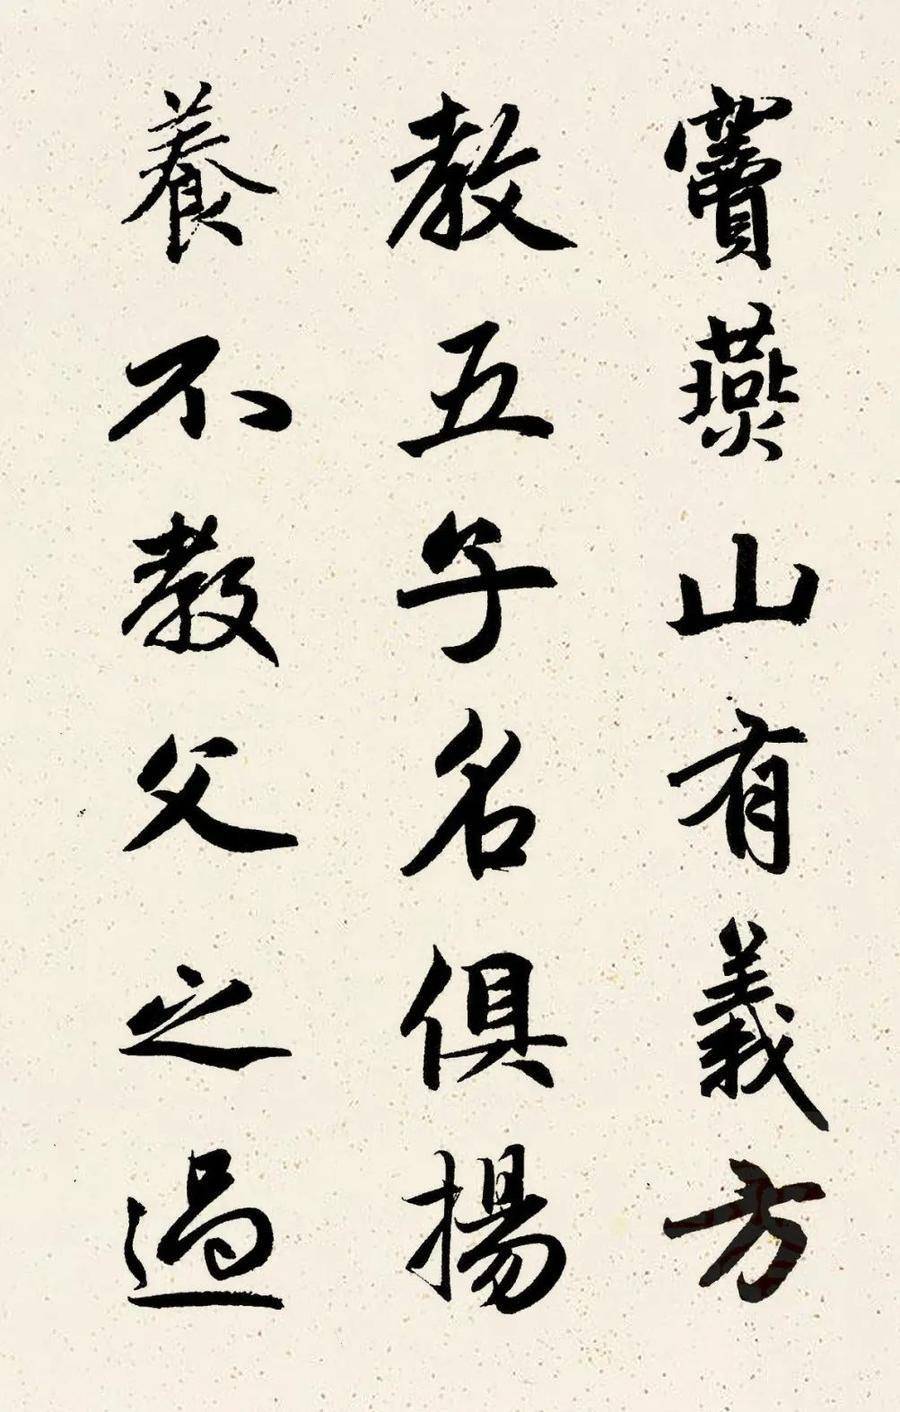 竇燕山有義方
教五子名俱揚
養不教父之過